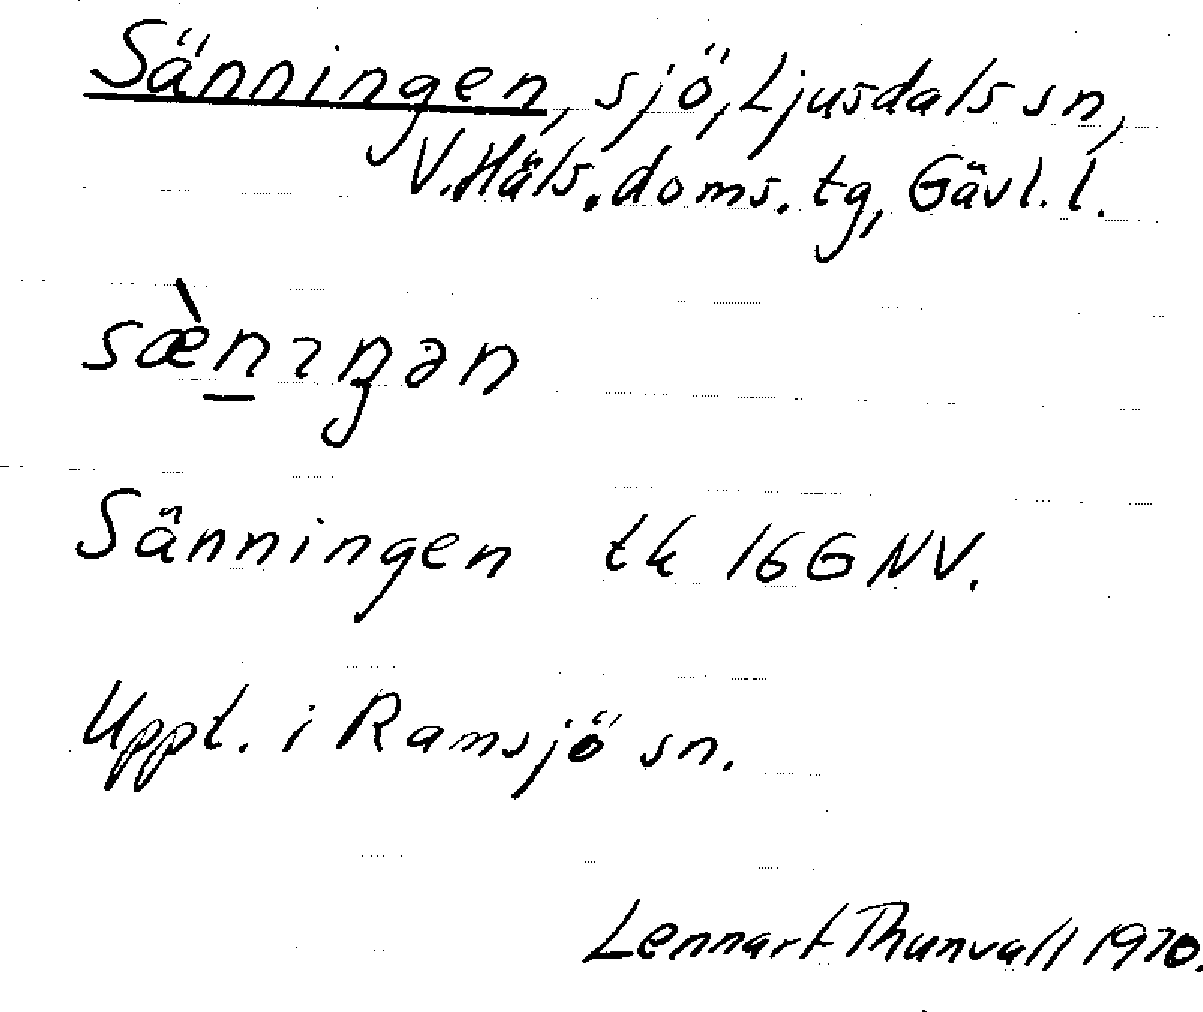 Sänningen, sjö, Ljusdals sn,
V. Häls. doms. tg, Gävl. l.
sæ̀n̲ɿŋən
Sänningen tk 16G NV.
Uppt. i Ramsjö sn.
Lennart Thunvall 1970.